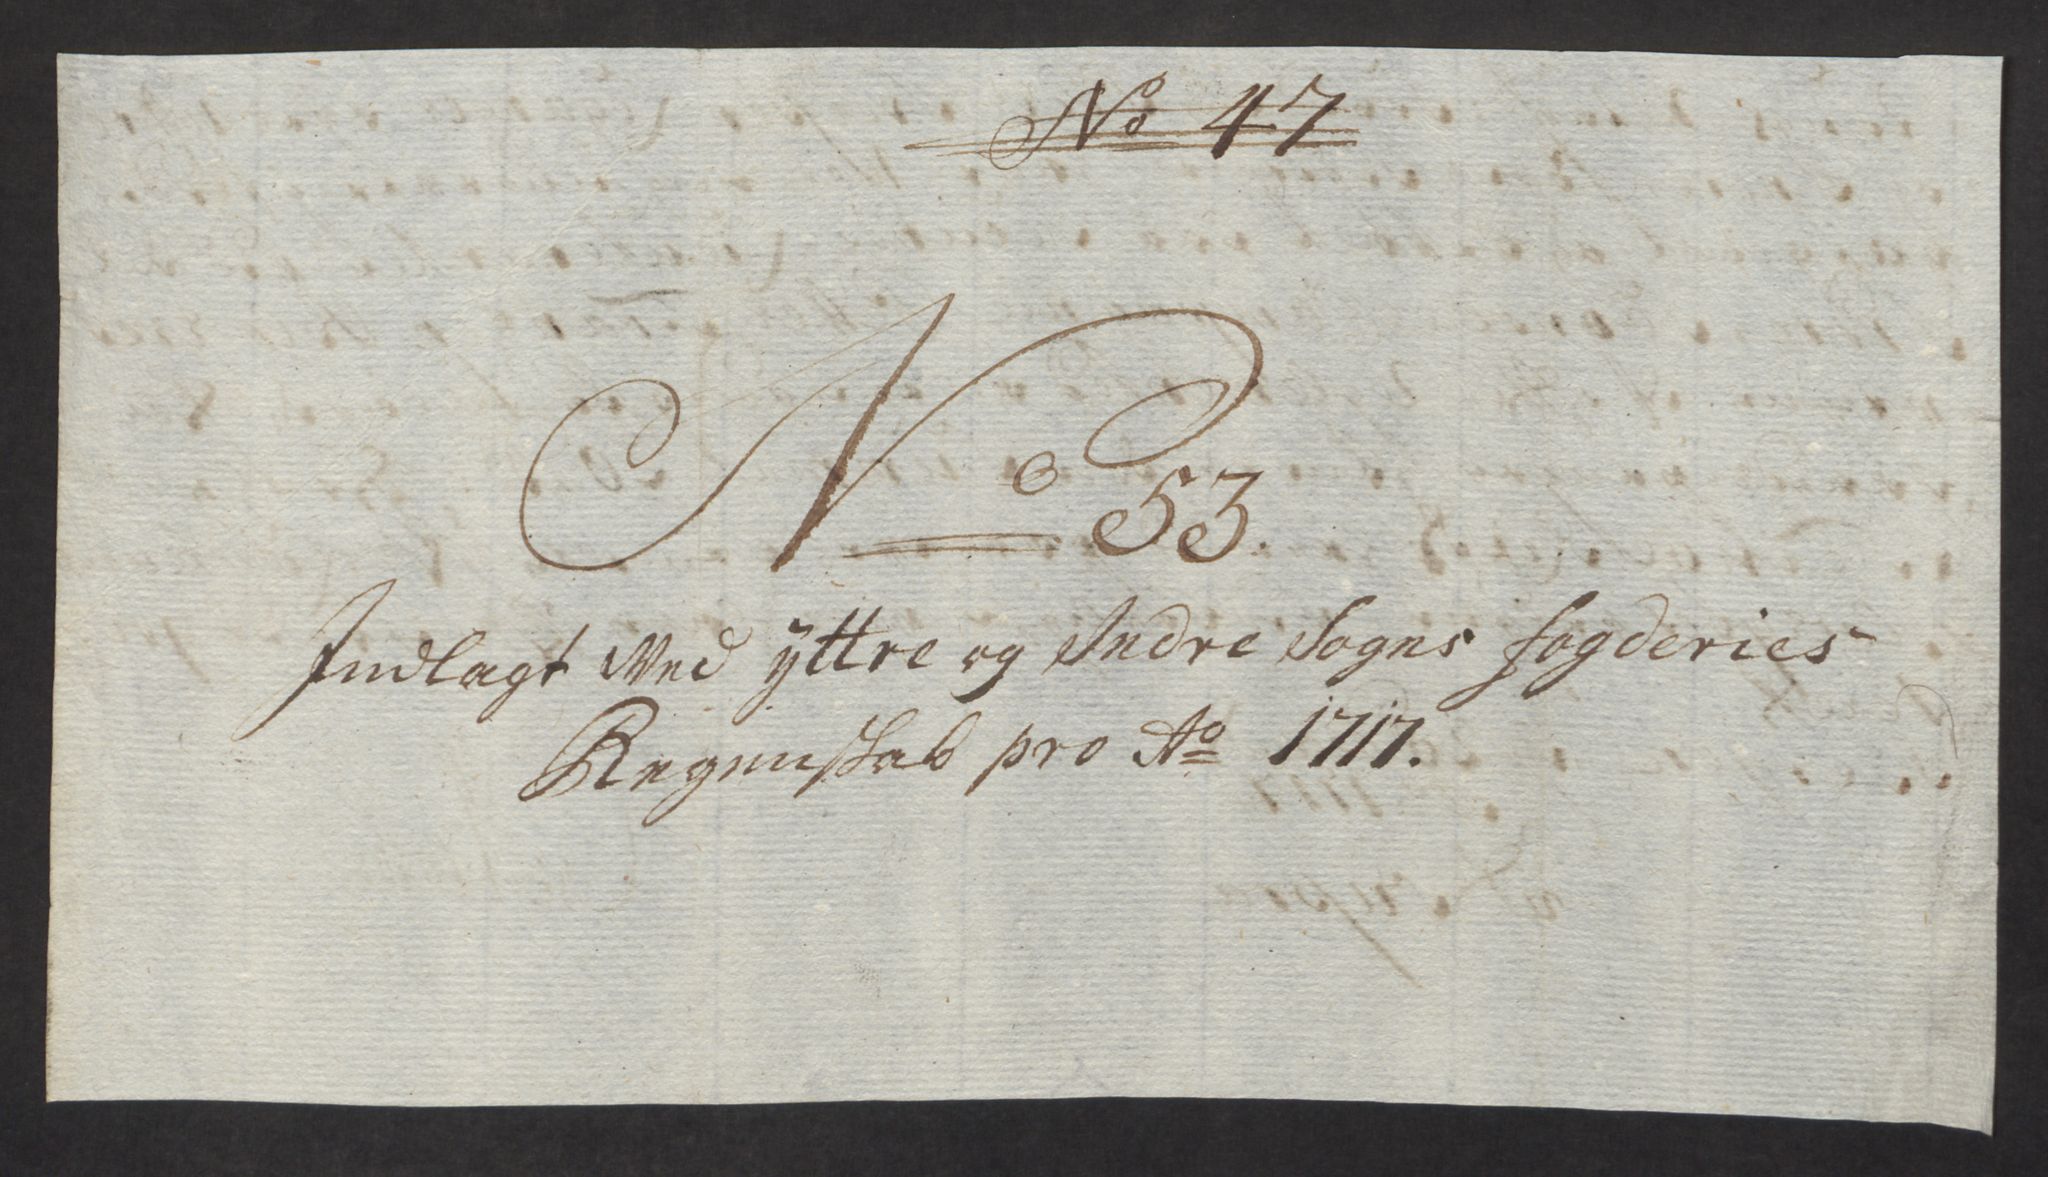 No 47
No 53.
Indlagt Med ÿttre og Indre Sogns fogderies
Regenskab pro Ao 1717.